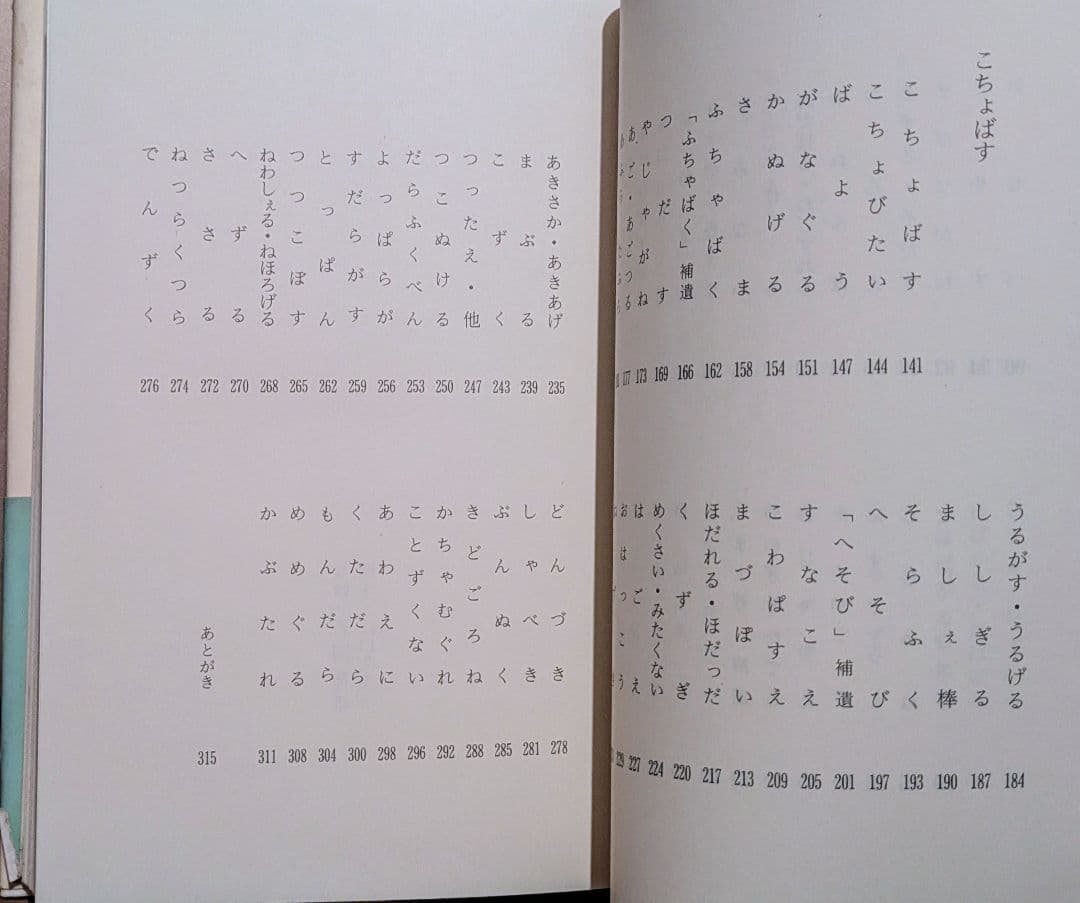 こちょばす
こちょばす 141
こちょびたい 144
ばよう 147
がなぐる 151
かぬげる 154
さま 158
ふちゃばく 162
「ふちゃばく」補遺 166
つだす 169
やじゃがね 173
あご・あごつる 177
うるがす・うるげる 184
ししぎる 187
ましぇ棒 190
そらふく 193
へそび 197
「へそび」補遺 201
すなこえ 205
こわぱすえ 209
まづぽい 213
ほだれる・ほだっだ 217
くずぎ 220
めくさい・みたくない 224
はごえ 227
おはっこう 229
あきさか・あきあげ 235
まぶる 239
こずく 243
つったえ・他 247
つこぬける 250
だらふくべん 253
よっぱらが 256
すだらがす 259
とっぱん 262
つつこぽす 265
ねわしぇる・ねほろげる 268
へずる 270
ささる 272
ねつらくつら 274
でんずく 276
どんづき 278
しゃべき 281
ぷんぬく 285
きどごろね 288
かちゃむぐれ 292
ことずくない 296
あわえに 298
くただら 300
もんだら 304
めめぐる 308
かぶたれ 311
あとがき 315